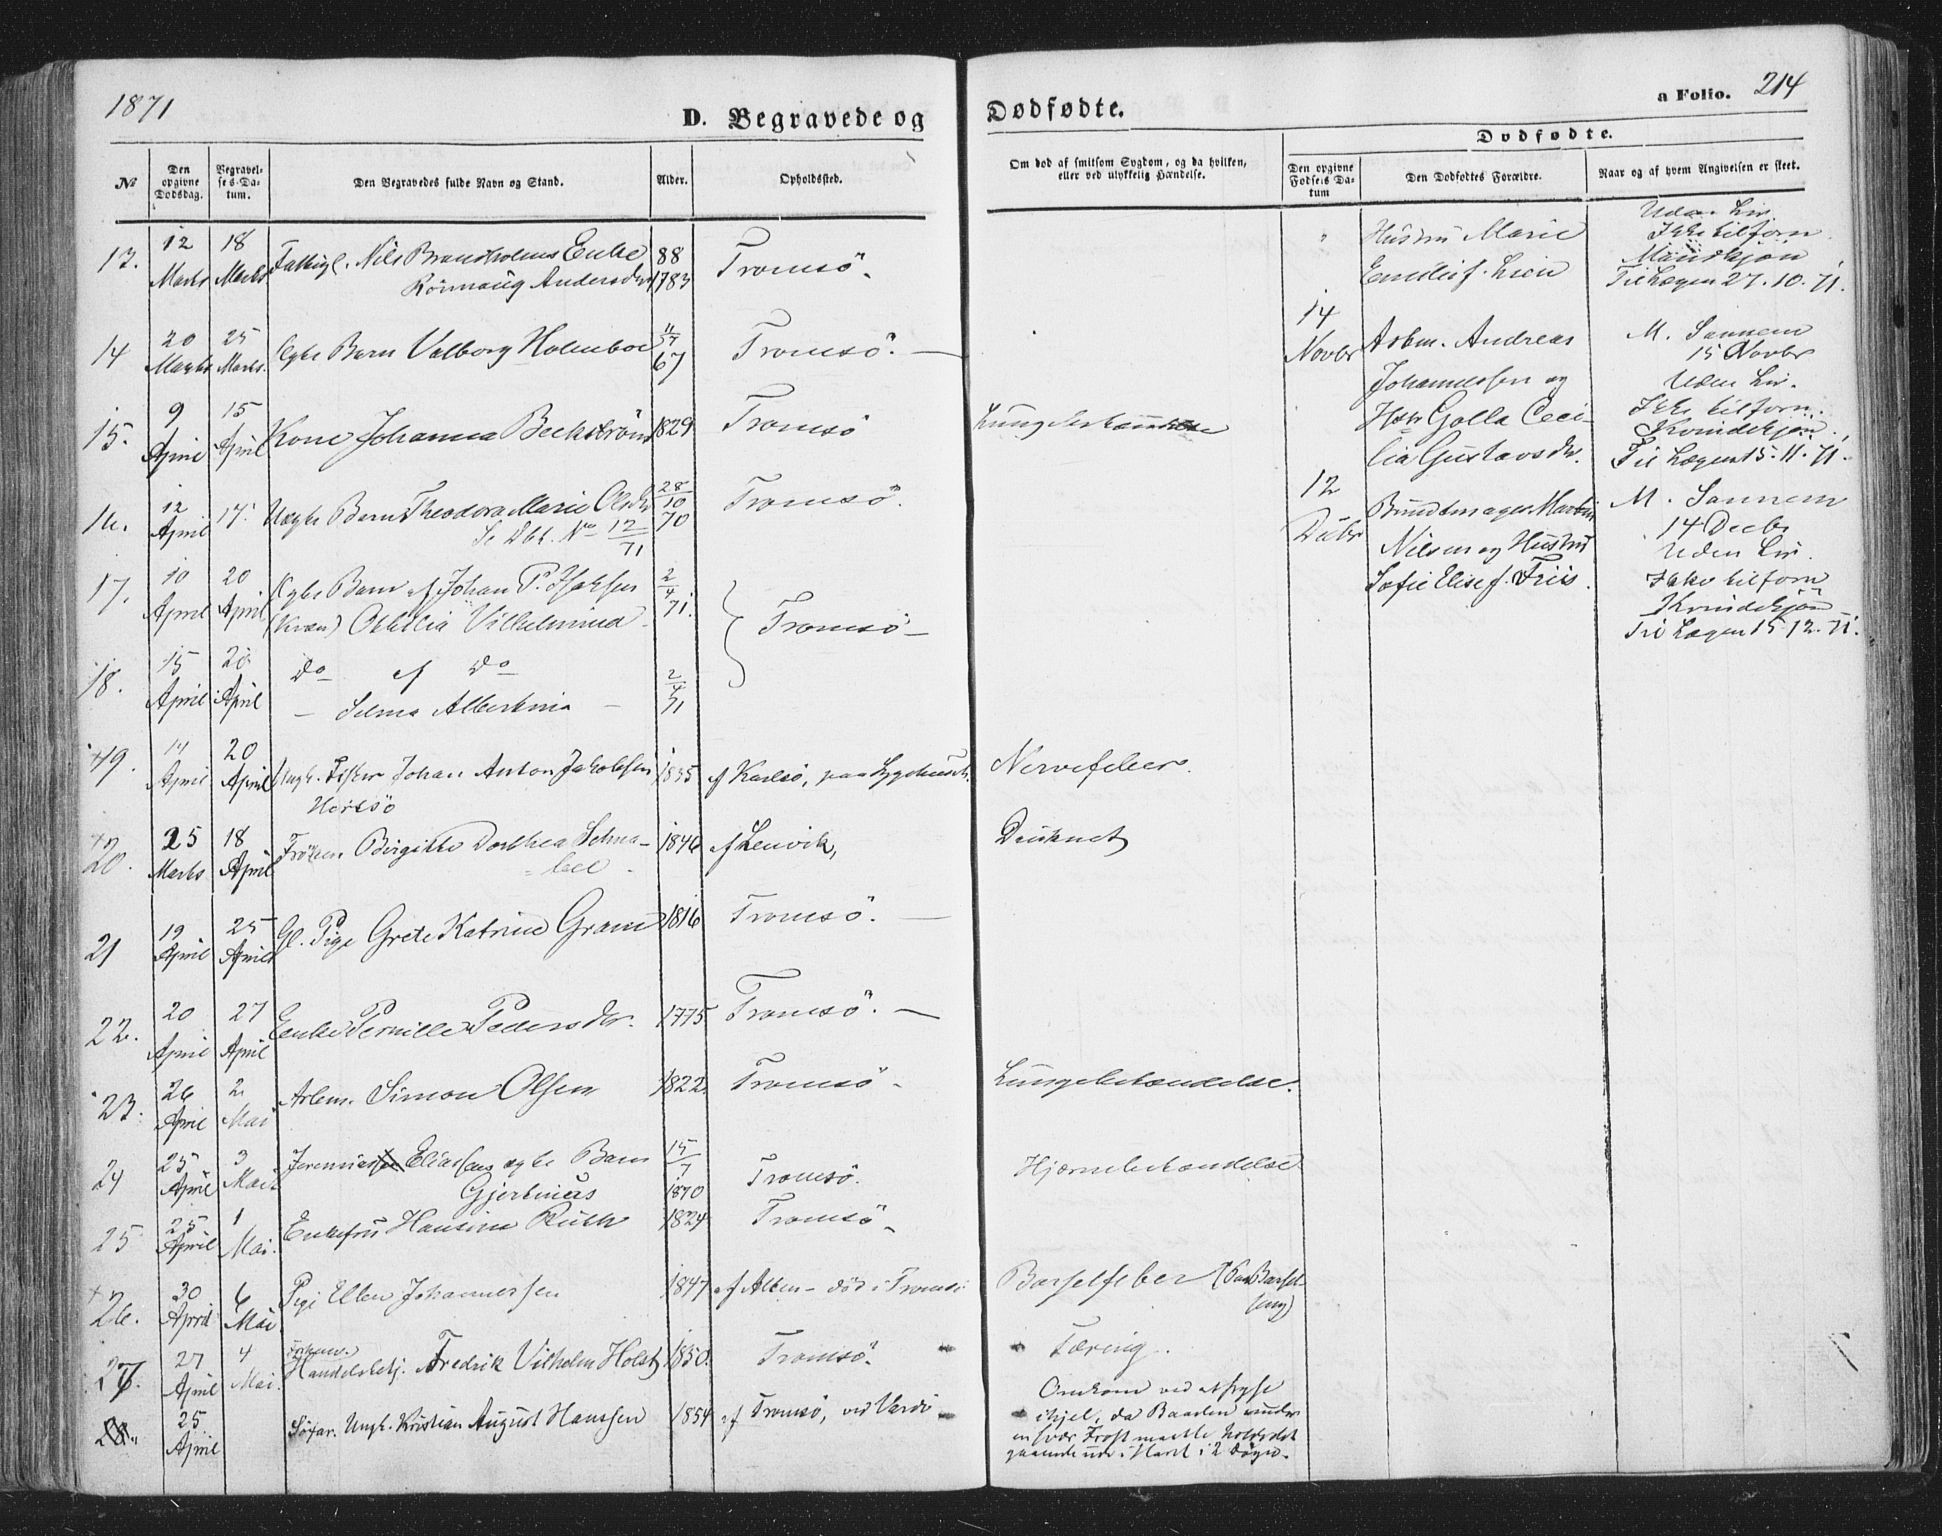 1871
D. Begravede og Dødfødte.
a Folio. 214
№
Den opgivne Dødsdag.
Begravelses-Datum.
Den Begravedes fulde Navn og Stand.
Alder.
Opholdssted.
Om død af smitsom Sygdom, og da hvilken, eller ved ulykkelig Hændelse.
Dødfødte.
Den opgivne Fødsels Datum
Den Dødfødtes Forældre.
Naar og af hvem Angivelsen er skeet.
13. 12 Marts 18 Marts Fattigl. Nils Enke 88 Tromsö.
Andersdtr 1783
14 20 Marts 25 Marts Ægte Barn Valborg Holmboe 11/4 67 Tromsö. —
15. 9 April 15 April Kone Johanna Beckström 1829 Tromsö Lungebetændelse
16. 12 April 17. Uægte Barn Theodora Marie Olsdtr 28/10 70 Tromsö.
Se Dbf. No 12/71
17. 10 April 20 April Ægte Barn af Johan P. Isaksen 2/4 71. Tromsö —
(Kvæn) Othilia Vilhelmina
18. 15 April 20 April Do af Do 2/4 71
— Selma Albertina —
19. 14 April 20 April Ungk. Fisker Johan Anton Jakobsen 1835 af Karlsö, paa Sygehuset. Nervefeber.
20. 25 Marts 18 April Fröken Birgitte Dorthea Schna- 1846 af Lenvik, Druknet
bel
21 19 April 25 April Gl. Pige Grete Katrine Gram 1816 Tromsö. —
22. 20 April 27 April Enke Pernille Pedersdtr. 1775 Tromsö. —
23. 26 April 2 Mai Arbm. Simon Olsen 1822 Tromsö. Lungebetændelse.
24 25 April 3 Mai Jeremias Eliassens ægte Barn 15/7 1870 Tromsö. Hjernebetændelse
25 25 April 1 Mai. Enkefru Hansine Ruth 1824 Tromsö.
26. 30 April 6 Mai Pige Ellen Johannessen 1847 af Alten — död i Tromsö Barselfeber (Paa Barsel
seng)
27. 27 April 4 Mai. Handelsbetj. Fredrik Vilhelm Holst 1850. Tromsö. Tæring.
28. 25 April Ungk. Kristian August Hanssen 1854 af Tromsö, ved Vardö Omkom ved at fryse
ihjel, da Baaden under
en svær Frost maatte holdes
gaaende ude i Havet i 2 Dögn.
Hustru Marie
Lien
Uden Liv.
Ikke tilforn
Mandkjøn
Til Lægen 27.10.71.
14 Novbr
Arbm. Andreas
Johannessen og
Hstr Golla Ceci-
lia Gustavsdtr.
M. Sannem
15 Novbr
Uden Liv.
Ikke tilforn.
Kvindekjøn.
Til Lægen 15.11.71.
12 Decbr
Bundtmager Martin
Nilsen og Hustru
Sofie Elise f. Friis.
M. Sannem
14 Decbr
Uden Liv.
Ikke tilforn
Kvindekjøn
Til Lægen 15.12.71.